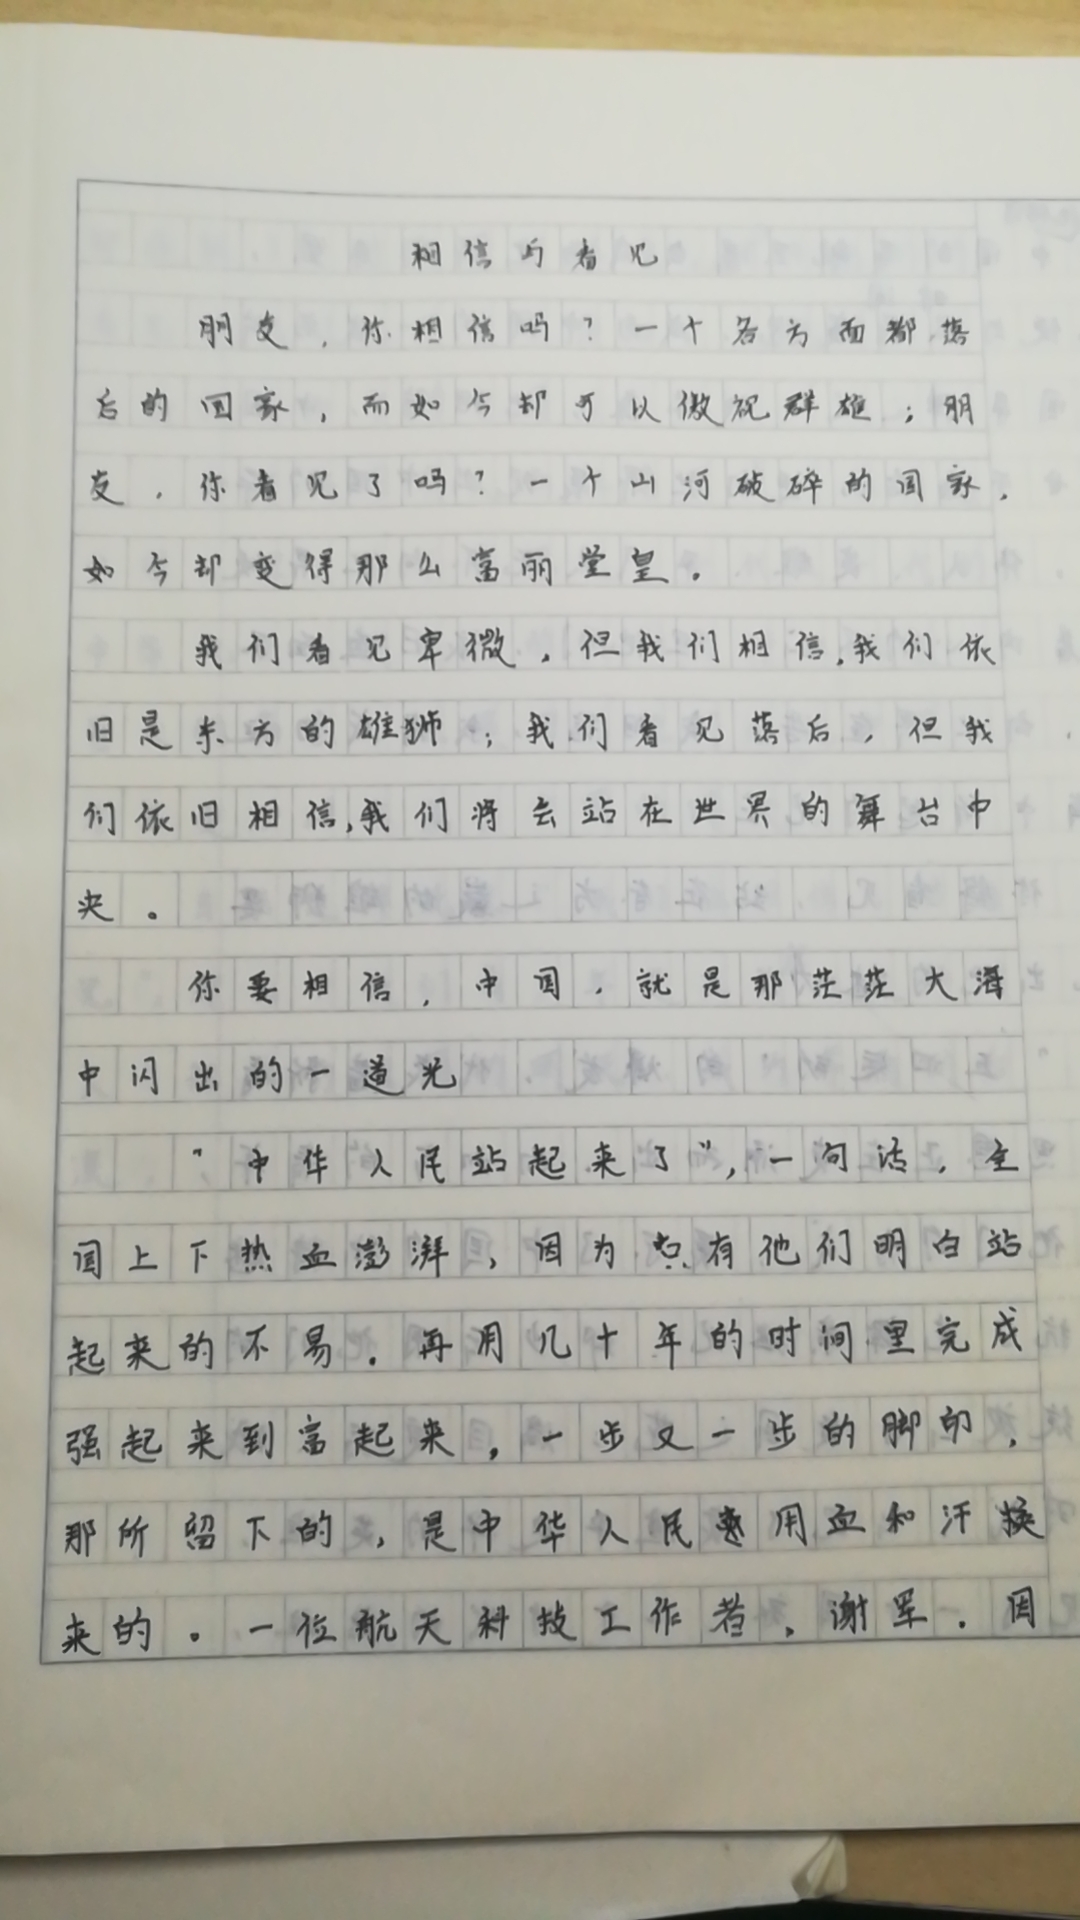 相信与看见
朋友，你相信吗？一个各方面都落
后的国家，而如今却可以傲视群雄；朋
友，你看见了吗？一个山河破碎的国家，
如今却变得那么富丽堂皇。
我们看见卑微，但我们相信，我们依
旧是东方的雄狮；我们看见落后，但我
们依旧相信，我们将会站在世界的舞台中
央。
你要相信，中国，就是那茫茫大海
中闪出的一道光
“中华人民站起来了”，一句话，全
国上下热血澎湃，因为只有他们明白站
起来的不易。再用几十年的时间里完成
强起来到富起来，一步又一步的脚印，
那所留下的，是中华人民用血和汗换
来的。一位航天科技工作者，谢军。因